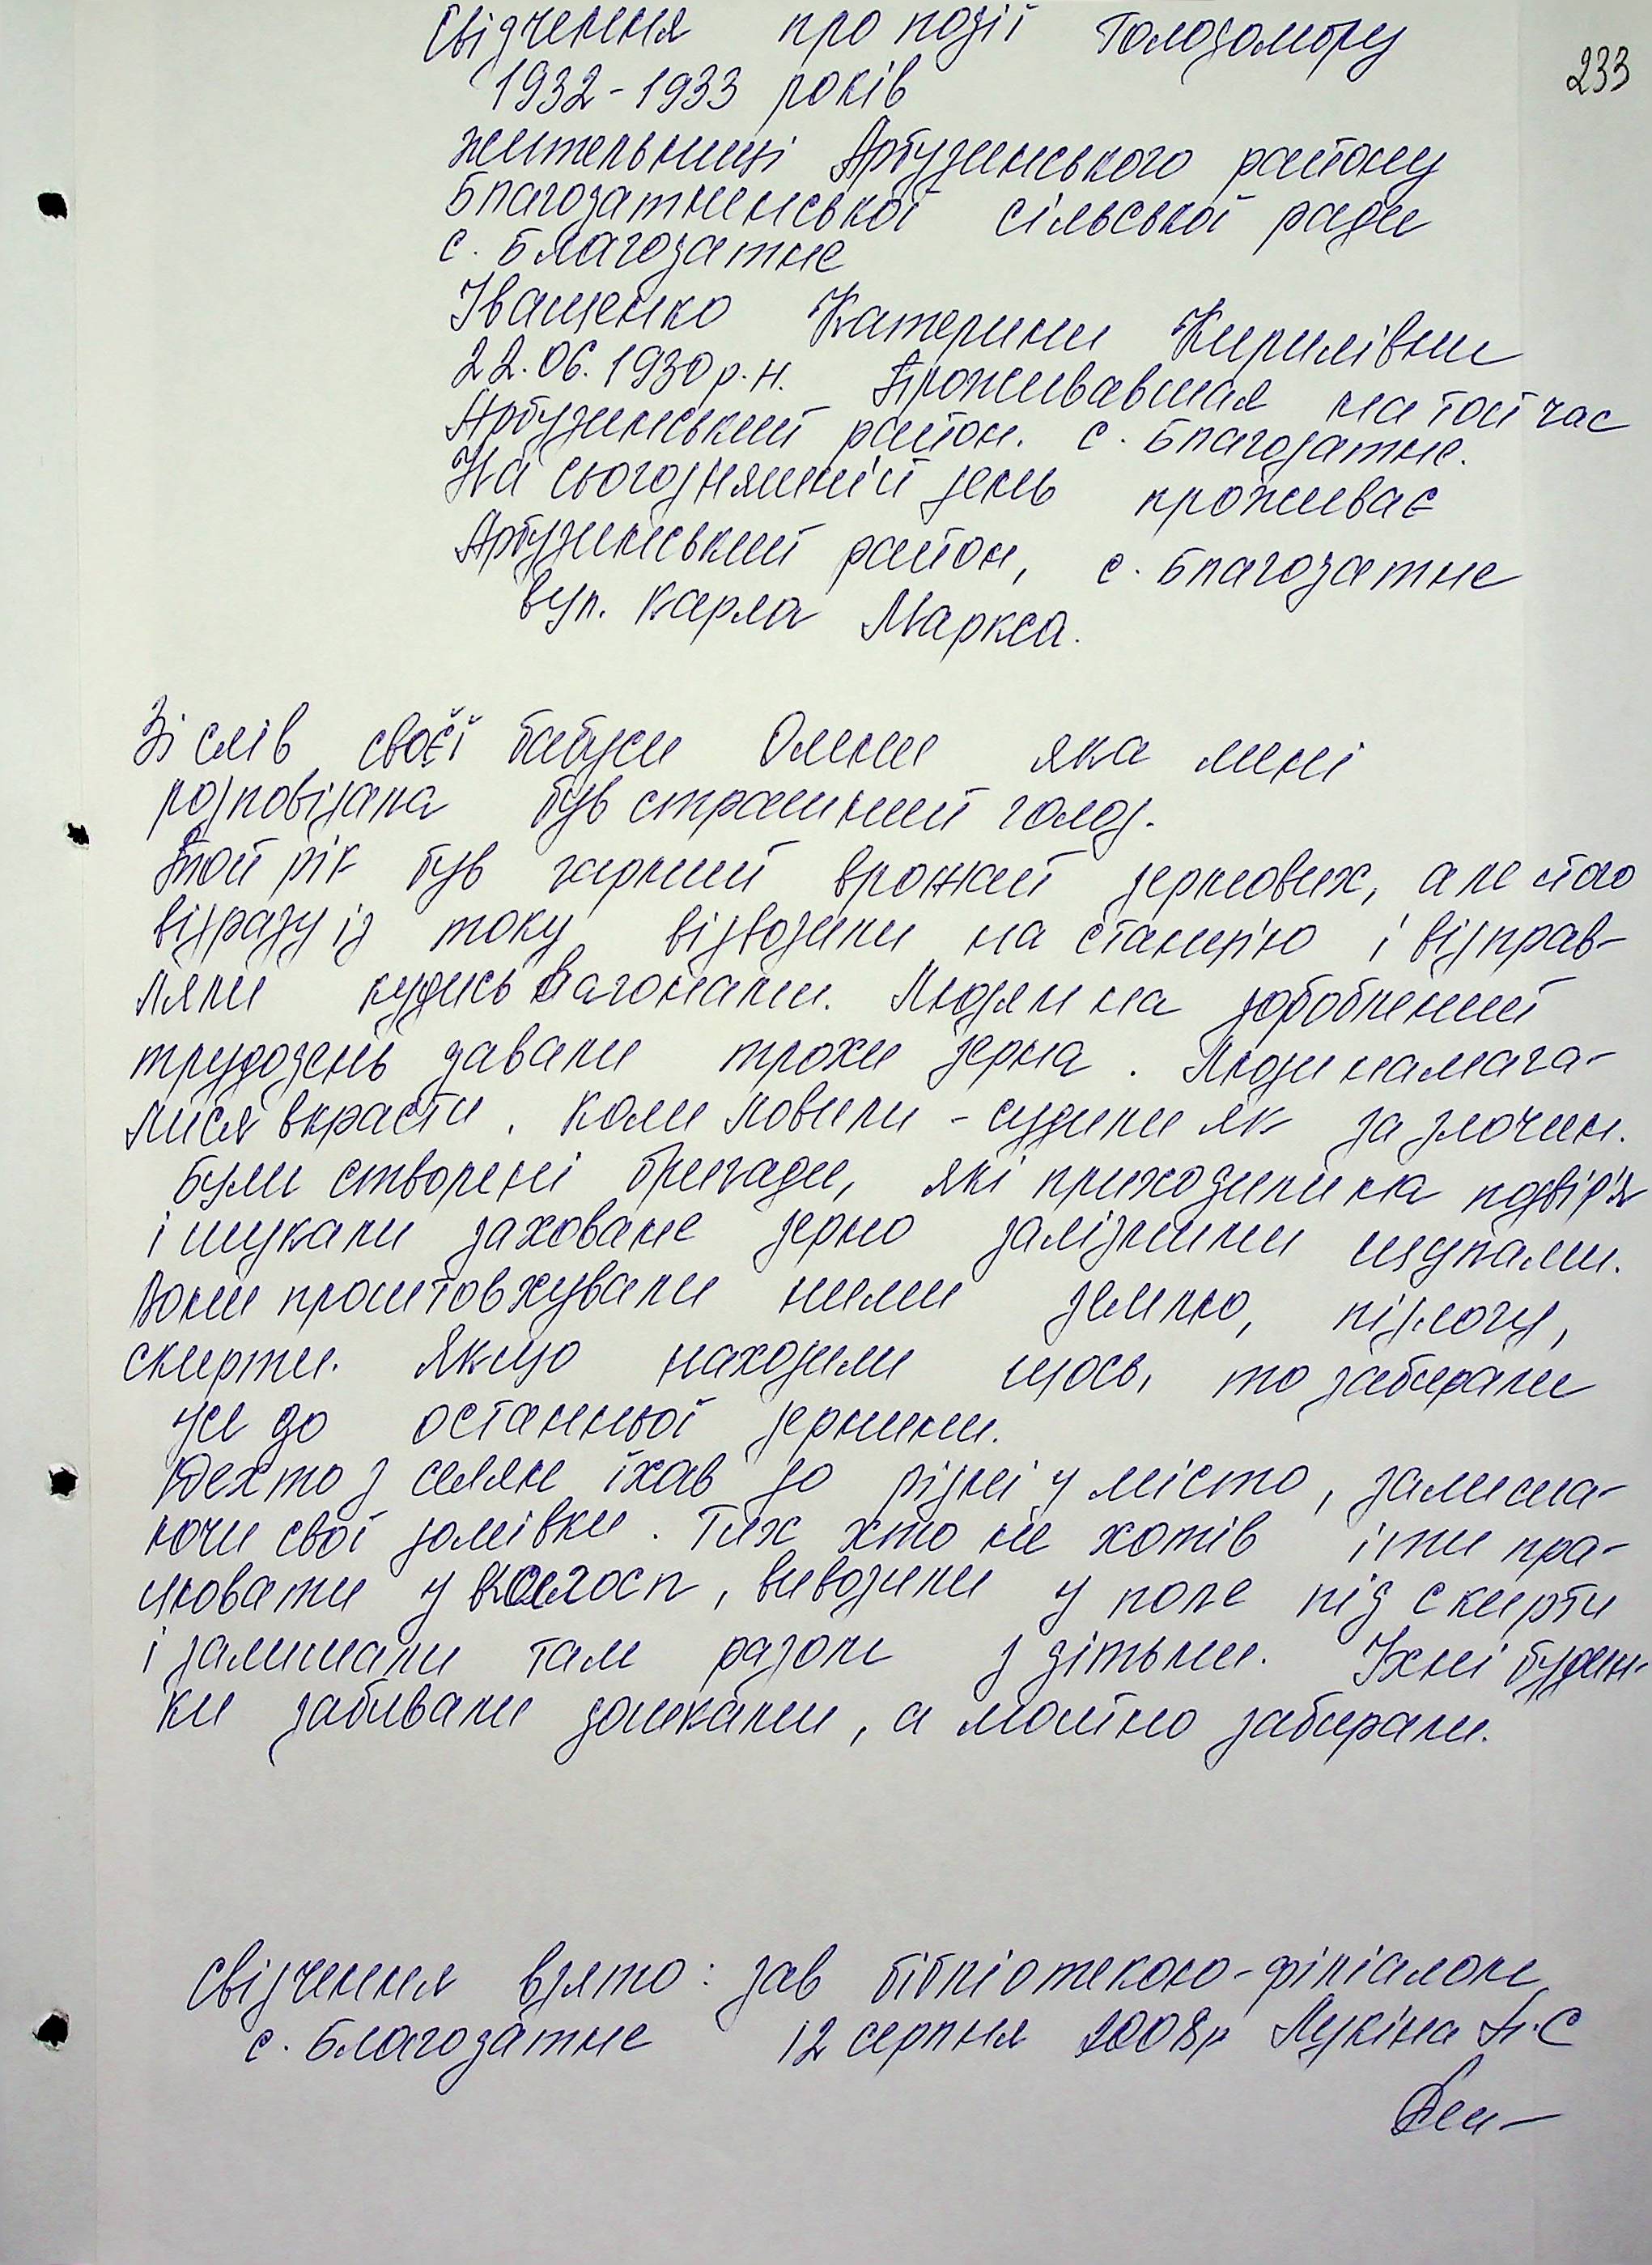 Свідчення про події Голодомору
233
1932-1933 років
жительниці Арбузинського району
Благодатненської сільської ради
с. Благодатне
Іващенко Катерини Кирилівни
22.06.1930 р.н. Проживавшая на той час
Арбузинський район. с. Благодатне.
На сьогодняшній день проживає
Арбузинський район, с. Благодатне
вул. Карла Маркса.
Зі слів своєї бабуси Олени яка мені
розповідала був страшний голод.
Той рік був гарний врожай зернових, але його
відразу із току відвозили на станцію і відправ-
ляли кудись вагонами. Людям на зороблений
трудодень давали трохи зерна. Люди намага-
лися вкрасти. Коли ловили - судили як за злочин.
Були створені бригади, які приходили на подвір'я
і шукали заховане зерно залізними щупами.
Вони проштовхували ними землю, підлогу,
скирти. Якщо находили щось, то забирали
усе до останньої зернини.
Дехто з селян їхав до рідні у місто, залиша-
ючи свої домівки. Тих хто не хотів іти пра-
цювати у колгосп, вивозили у поле під скирти
і залишали там разом з дітьми. Їхні будин-
ки забивали дошками, а майно забирали.
Свідчення взято: зав бібліотекою-філіалом
с. Благодатне 12 серпня 2008р Лукіна Н.С